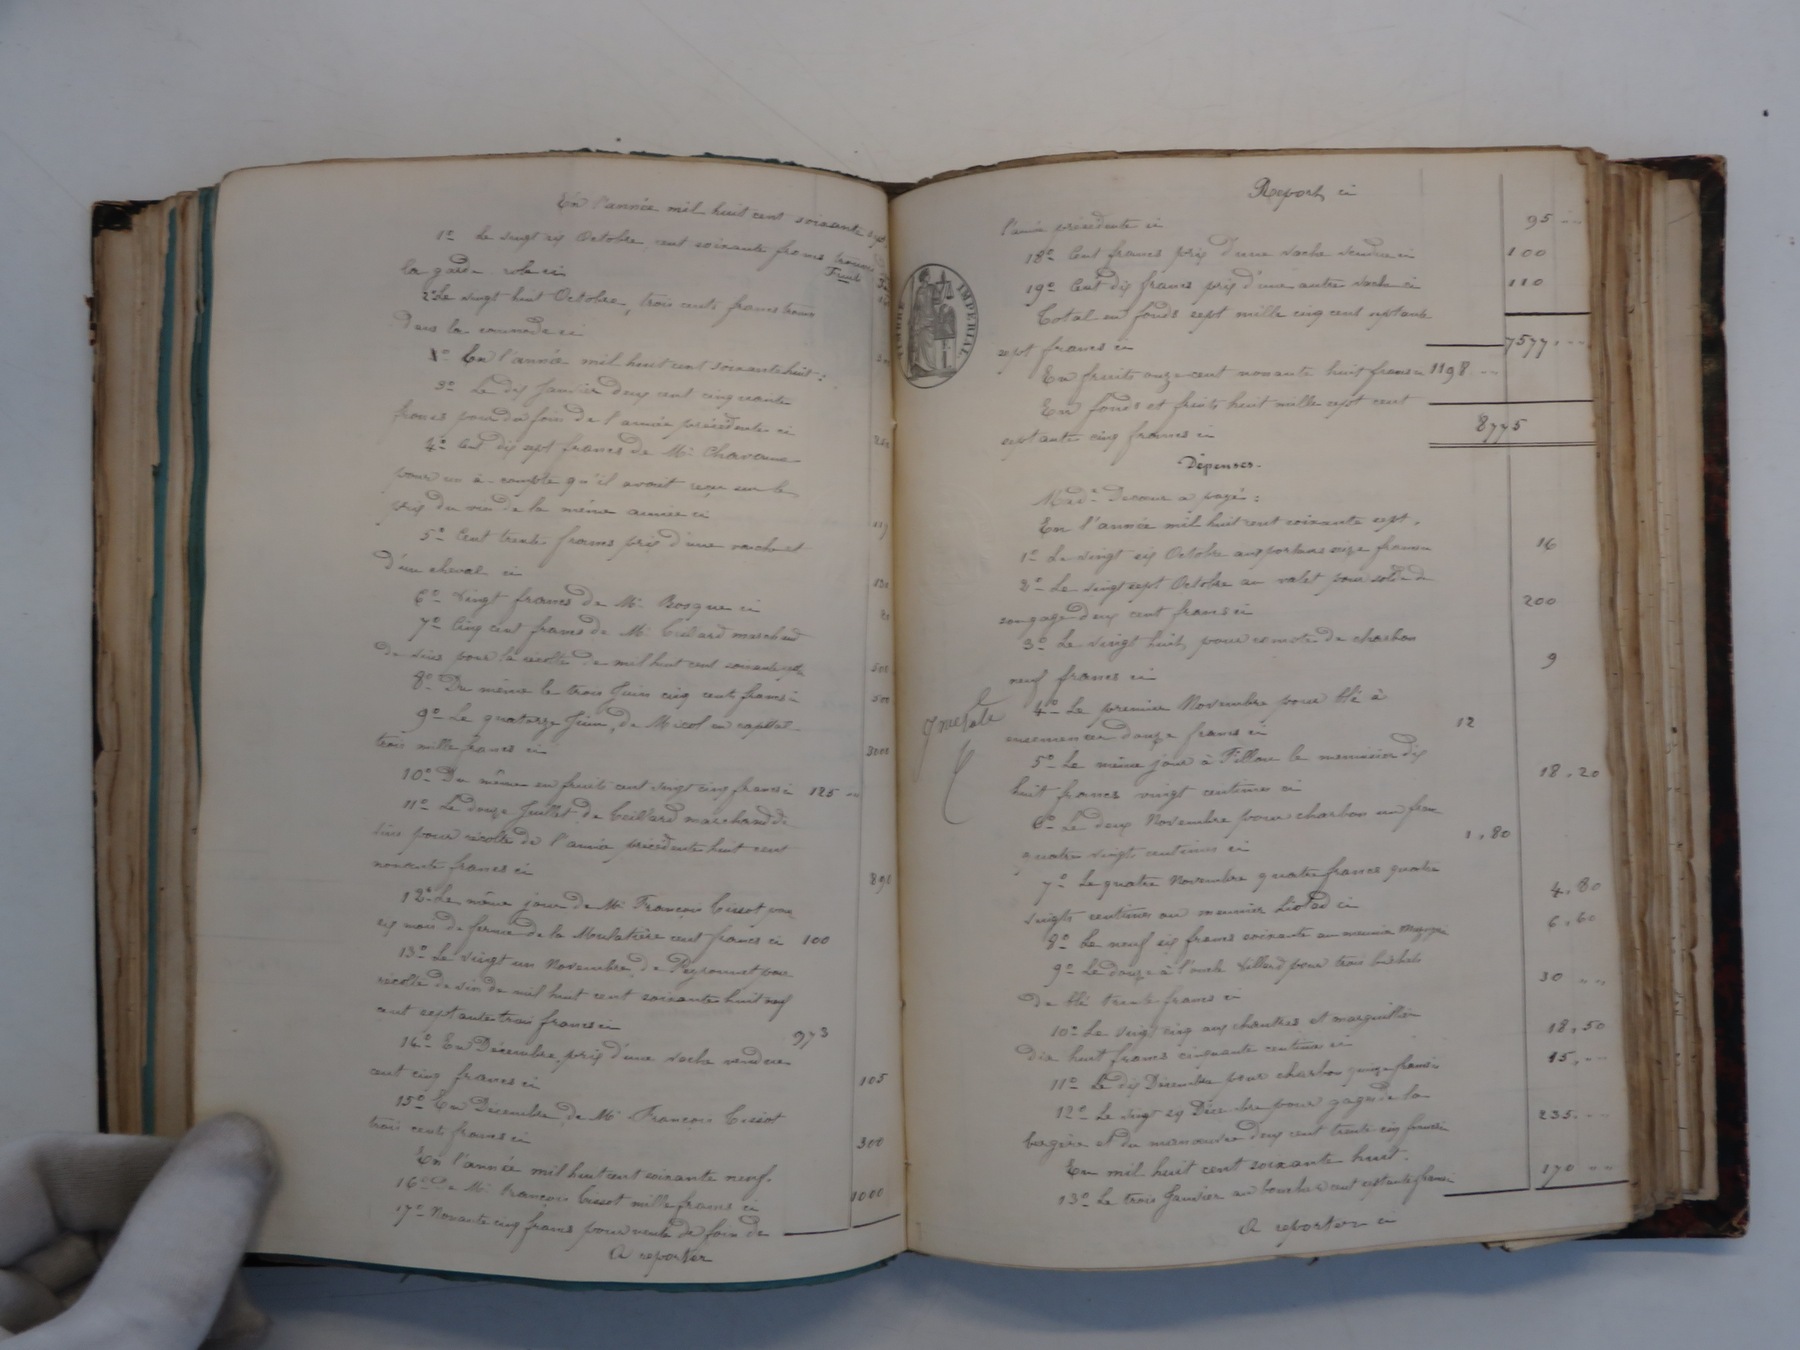 En l'année mil huit cent soixante sept
1º Le vingt six Octobre, cent soixante francs trouvés
Fruits
la garde robe ci
2º Le vingt huit Octobre, trois cents francs trouvés
dans la commode ci
En l'année mil huit cent soixante huit :
3º Le dix Janvier deux cent cinquante
francs pour du foin de l'année précédente ci
4º Cent dix sept francs de Mr Chavanne
pour un à-compte qu'il avait reçu sur le
prix du vin de la même année ci
117
5º Cent trente francs prix d'une vache et
d'un cheval ci
6º Vingt francs de Mr Bosque ci
7º Cinq cent francs de Mr marchand
de vins pour la récolte de mil huit cent soixante sept
500
8º Du même le trois Juin cinq cent francs ci
500
9º Le quatorze Juin, de Micol en capital
trois mille francs ci
3000
10º Du même en fruits cent vingt cinq francs ci 125
11º Le douze Juillet de marchand de
vins pour récolte de l'année précédente huit cent
nonante francs ci
890
12º Le même jour de Mr François Cissot pour
six mois de ferme de la Moulatière cent francs ci 100
13º Le vingt un Novembre, de Peyronnet pour
récolte de vin de mil huit cent soixante huit neuf
cent septante trois francs ci
973
14º En Décembre, prix d'une vache vendue
cent cinq francs ci
105
15º En Décembre, de Mr François Cissot
trois cents francs ci
300
En l'année mil huit cent soixante neuf.
16º De Mr François Cissot mille francs ci
1000
17º Nonante cinq francs pour vente de foin de
A reporter
Report ci
l'année précédente ci 95
18º Cent francs prix d'une vache vendue ci 100
19º Cent dix francs prix d'une autre vache ci 110
TIMBRE IMPÉRIAL
Total en fonds sept mille cinq cent septante
sept francs ci 7577
En fruits onze cent nonante huit francs ci 1198
En fonds et fruits huit mille sept cent
septante cinq francs ci 8775
Dépenses.
Made a payé :
En l'année mil huit cent soixante sept.
1º Le vingt six Octobre aux porteurs seize francs ci 16
2º Le vingt sept Octobre au valet pour solde de
son gage deux cent francs ci 200
3º Le vingt huit, pour de charbon
neuf francs ci 9
4º Le premier Novembre pour blé à
ensemencer douze francs ci 12
5º Le même jour à Fillon le menuisier dix
huit francs vingt centimes ci 18,20
6º Le deux Novembre pour charbon un franc
quatre vingts centimes ci 1,80
7º Le quatre Novembre quatre francs quatre
vingts centimes au meunier Liotad ci 4,80
8º Le neuf six francs soixante au meunier ci 6,60
9º Le douze à l'oncle Villard pour trois bichets
de blé trente francs ci 30
10º Le vingt cinq aux chantres et marguillier
dix huit francs cinquante centimes ci 18,50
11º Le dix Décembre pour charbon quinze francs ci 15
12º Le vingt six Décembre pour gages de la
bergère et du manœuvre deux cent trente cinq francs ci 235
En mil huit cent soixante huit.
13º Le trois Janvier au boucher cent septante francs ci 170
A reporter ci